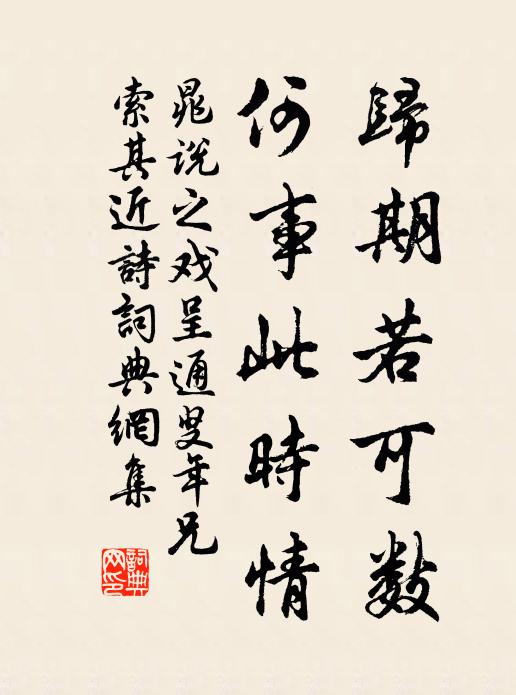 歸期若可數
何事此時情
晁說之戏呈通叟年兄
索其近詩詞典網集
詞典
网印